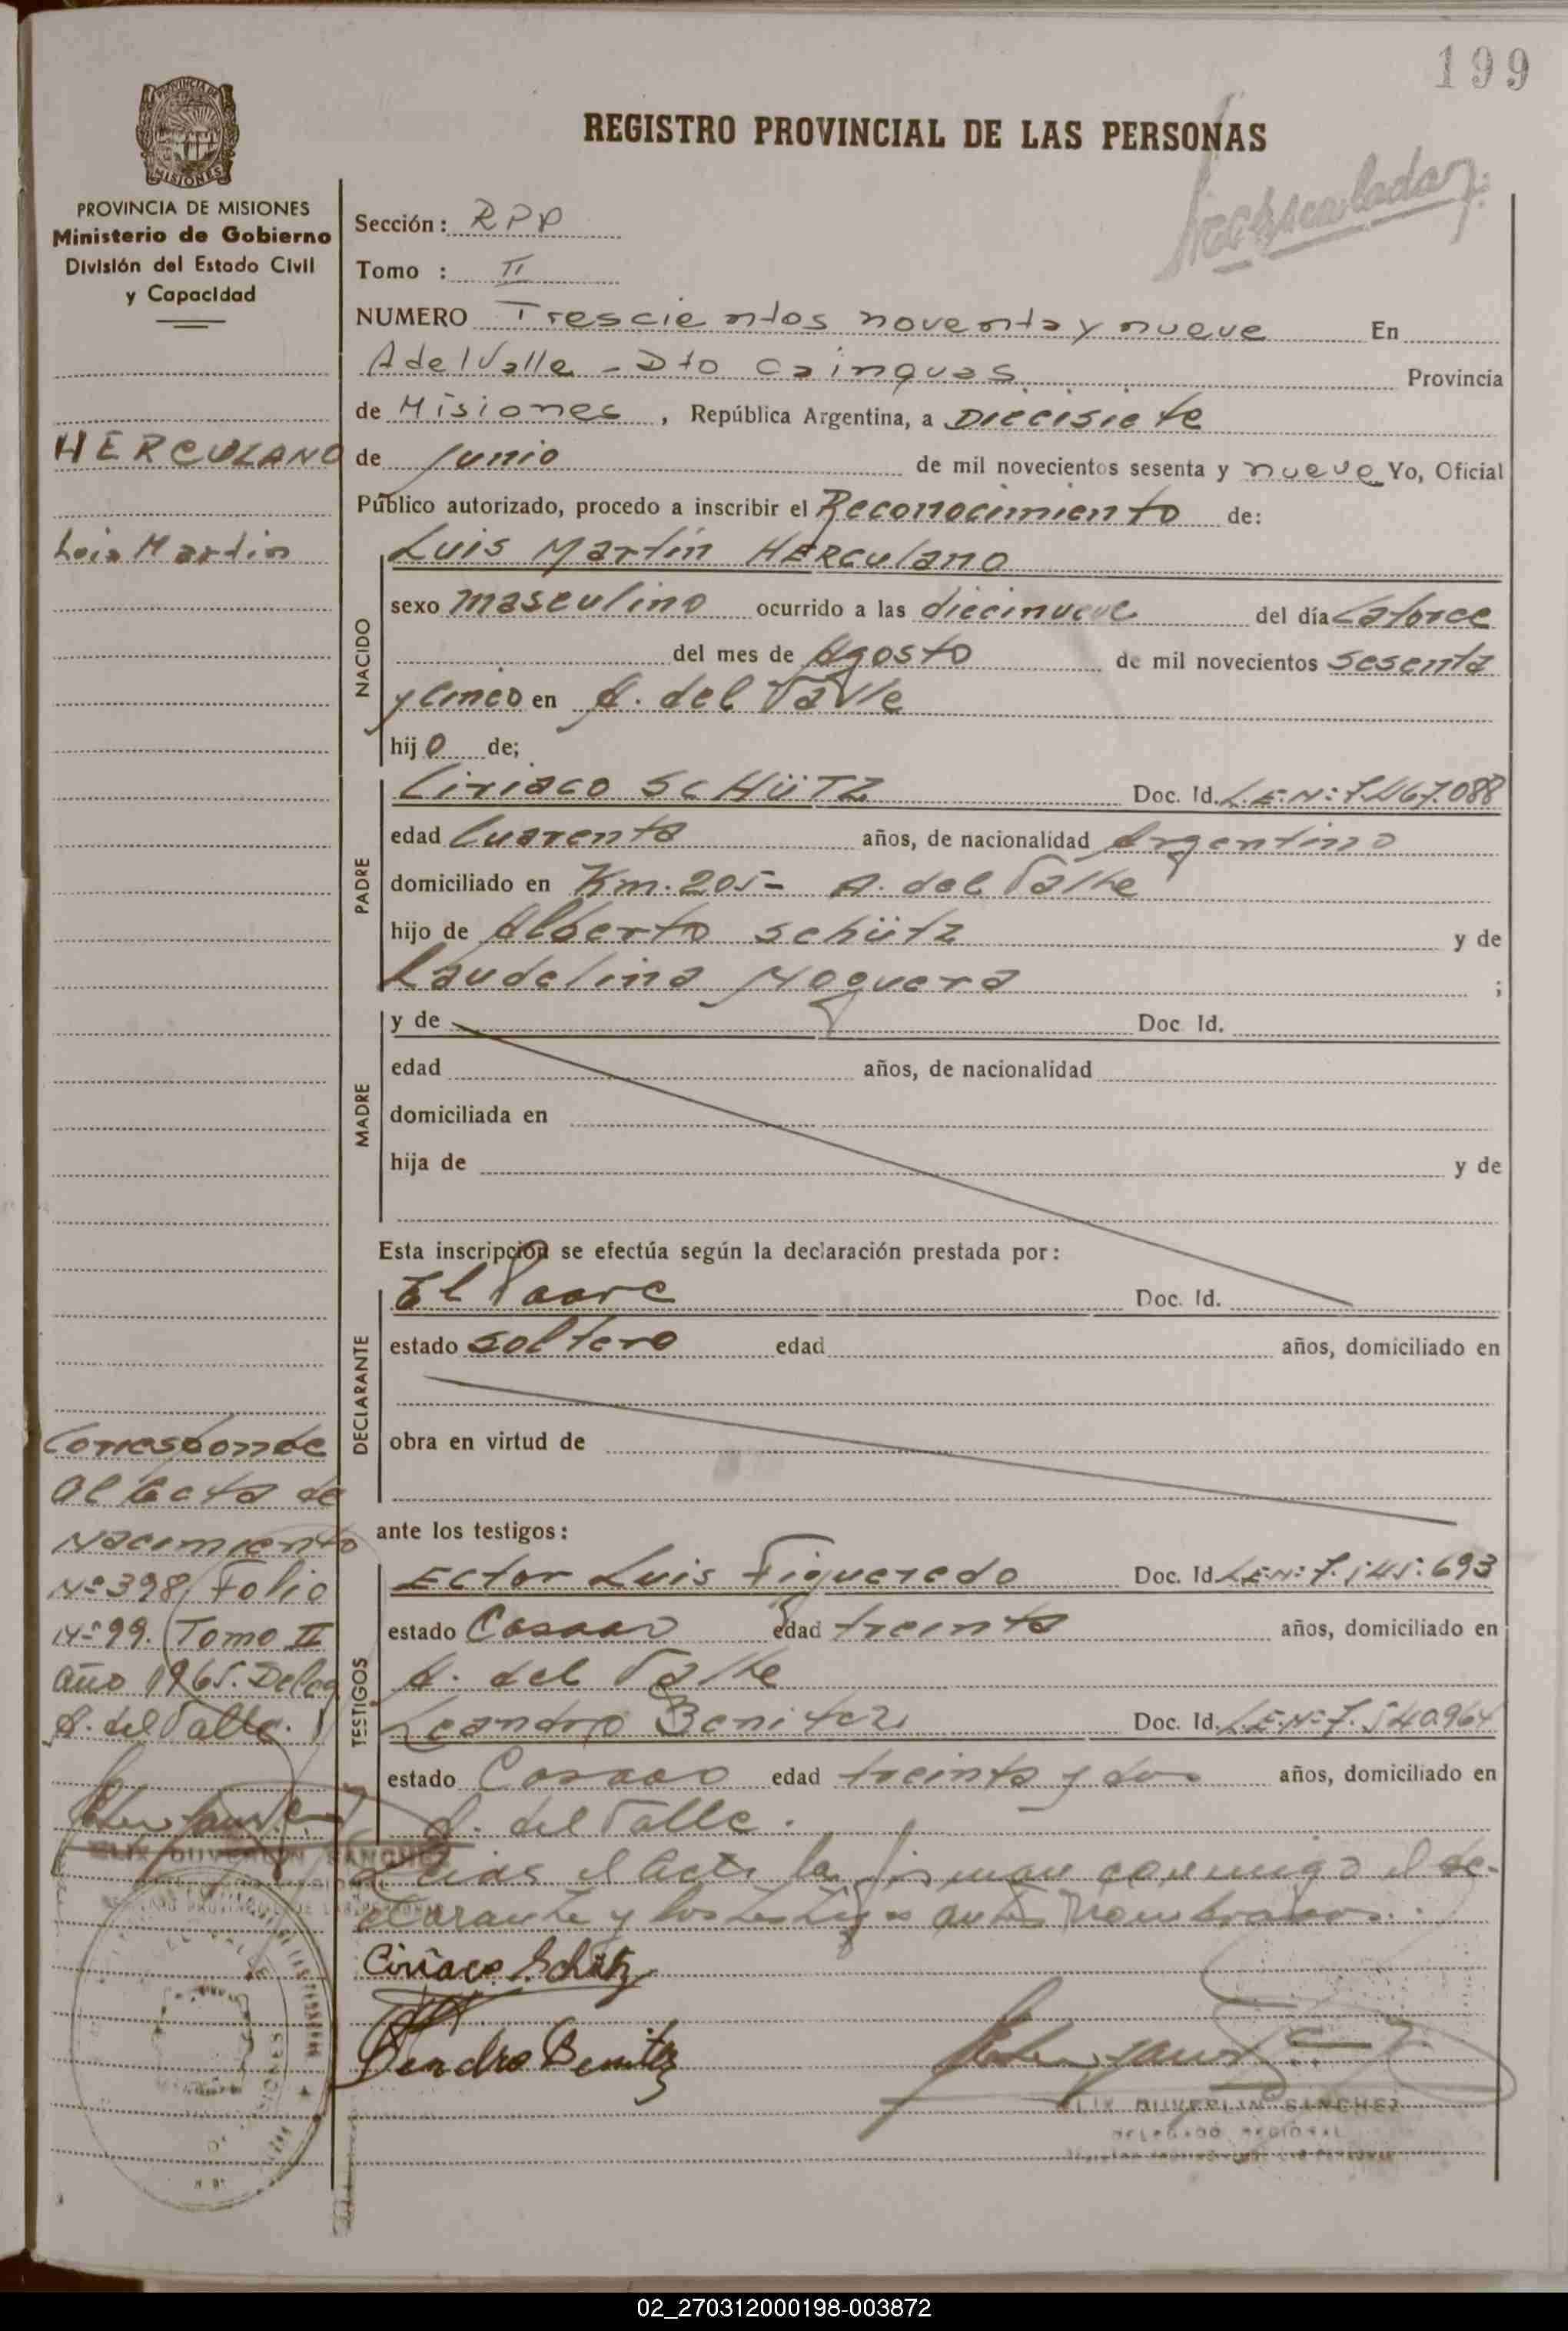 199
REGISTRO PROVINCIAL DE LAS PERSONAS
PROVINCIA DE MISIONES
PROVINCIA DE MISIONES
Ministerio de Gobierno
División del Estado Civil
y Capacidad
HERCULANO
Luis Martin
Sección: RPP
Tomo : II
NUMERO Trescientos noventa y nueve En
A del Valle - Dto Cainguas Provincia
de Misiones, República Argentina, a Diecisiete
de Junio de mil novecientos sesenta y nueve Yo, Oficial
Público autorizado, procedo a inscribir el Reconocimiento de:
NACIDO
Luis Martín HERculano
sexo masculino ocurrido a las diecinueve del día Catorce
del mes de Agosto de mil novecientos sesenta
y cinco en A. del Valle
hijo de;
PADRE
Ciriaco SCHÜTZ Doc. Id. L.E.Nº 7.467.088
edad Cuarenta años, de nacionalidad Argentino
domiciliado en Km. 205- A. del Valle
hijo de Alberto Schütz y de
Laudelina Noguera ;
MADRE
y de Doc Id.
edad años, de nacionalidad
domiciliada en
hija de y de
Esta inscripción se efectúa según la declaración prestada por:
DECLARANTE
El Padre Doc. Id.
estado soltero edad años, domiciliado en
obra en virtud de
ante los testigos:
TESTIGOS
Ector Luis Figueredo Doc. Id L.E.Nº 7.545.693
estado Casado edad treinta años, domiciliado en
A. del Valle
Leandro Benitez Doc. Id. L.E.Nº 7.540.964
estado Casado edad treinta y dos años, domiciliado en
A. del Valle.
el Acta la firman conmigo el de-
clarante y los testigos antes nombrados.
Ciriaco Schütz
Leandro Benitez
Corresponde
al Acta de
Nacimiento
Nº 398 Folio
Nº 99. Tomo II
Año 1965. Deleg
A. del Valle.
DUVERLIN SANCHEZ
DUVERLIN SANCHEZ
DELEGADO REGIONAL
02_270312000198-003872